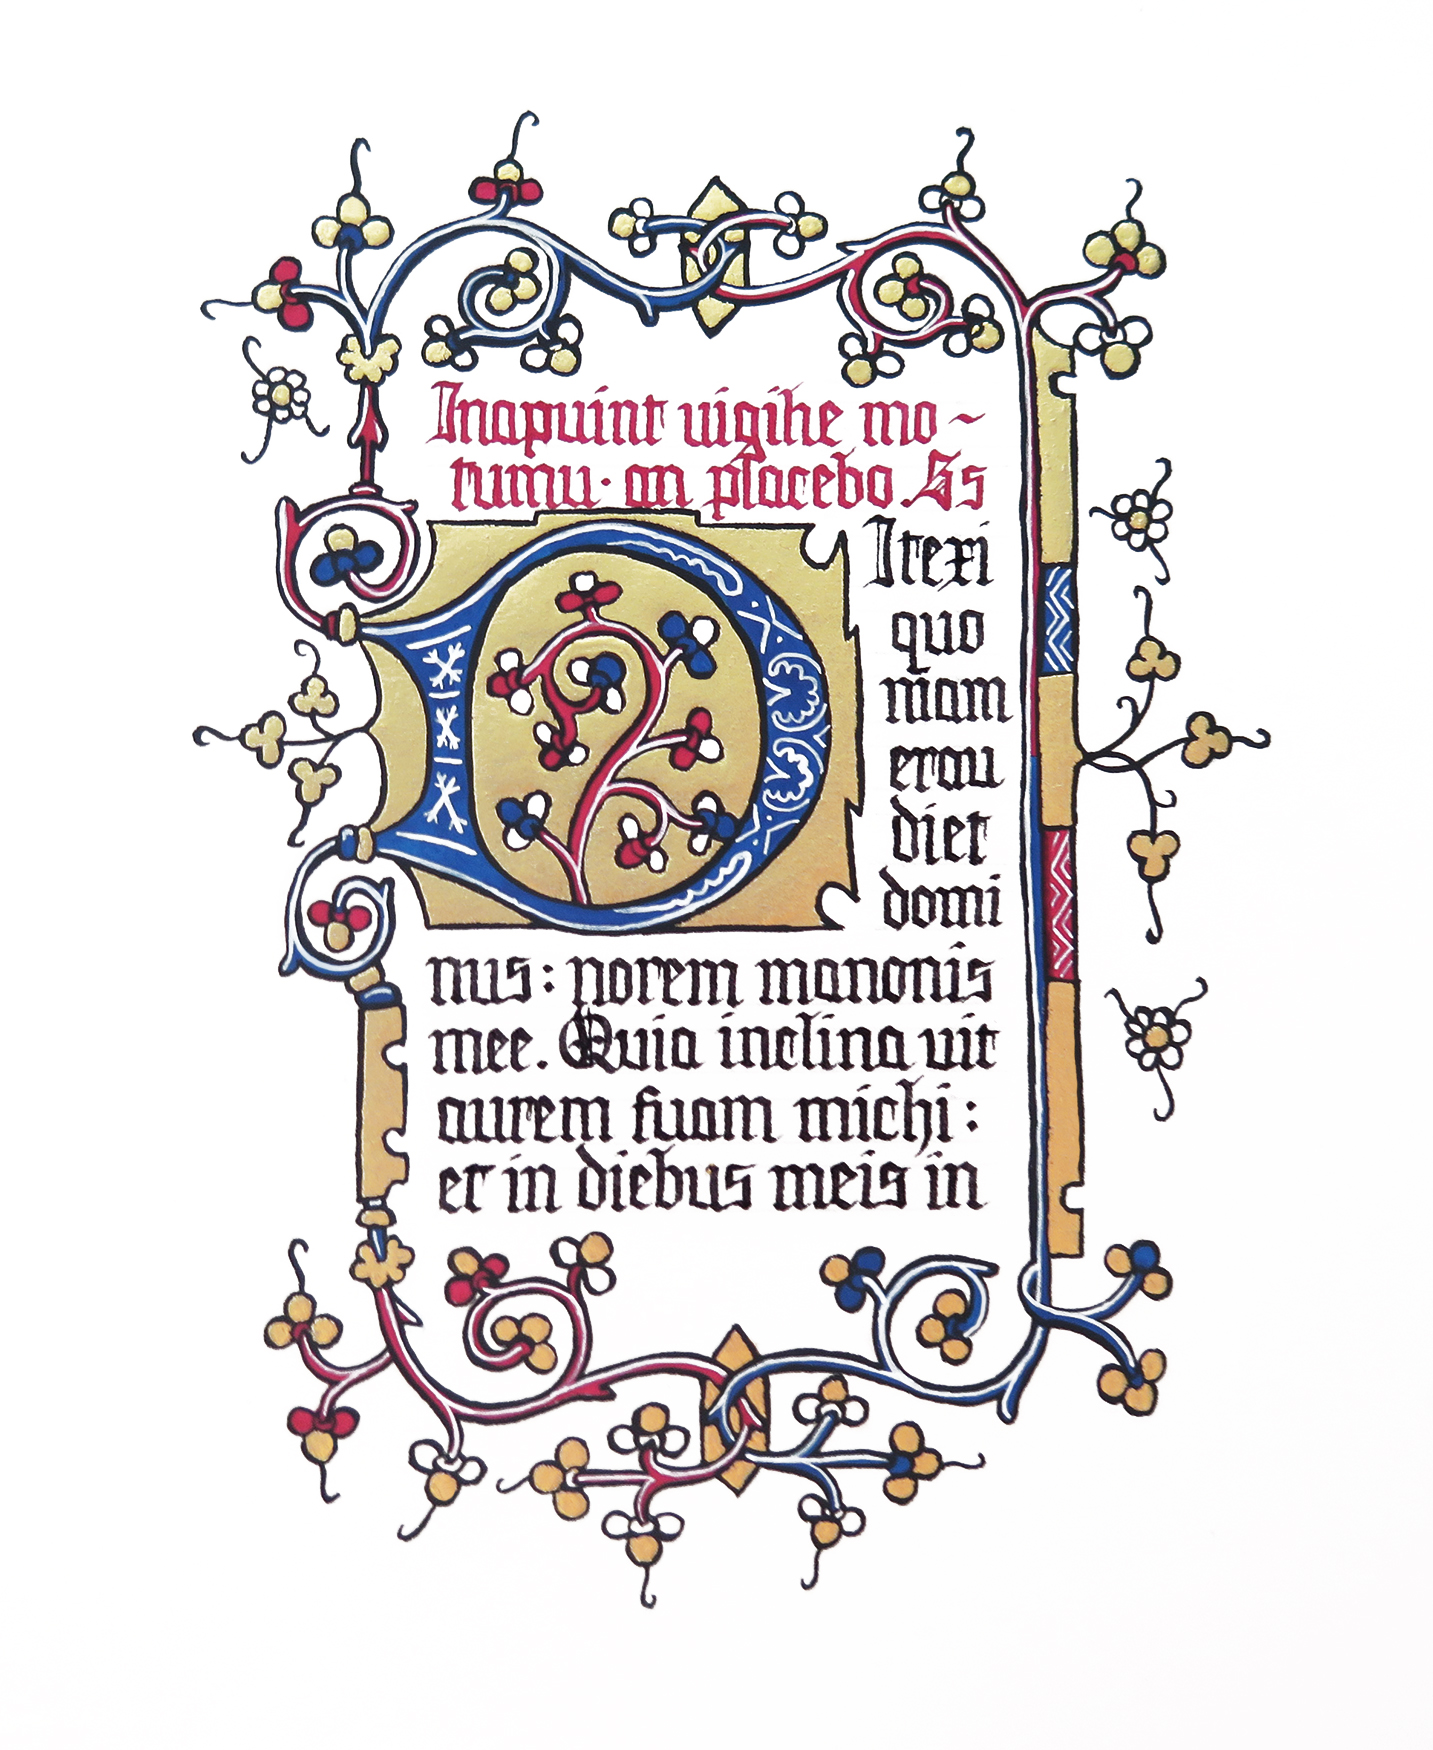 Inapuint uigihe mo~
tumu· an placebo. Ss
DItexi
quo
niam
erau
diet
domi
nus: norem manonis
mee. Quia inclina uit
aurem fuam michi:
et in diebus meis in